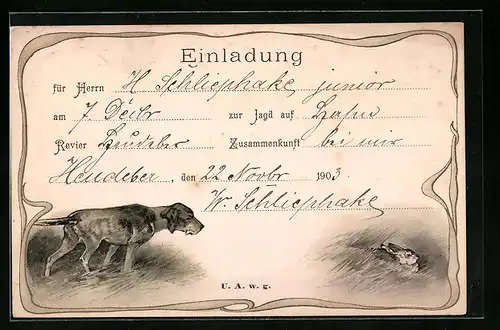 Einladung
für Herrn H Schliephake junior
am 7 Decbr zur Jagd auf Hasen
Revier Heudeber Zusammenkunft bei mir
Heudeber, den 22 Novbr 1903
W. Schliephake
U. A. w. g.